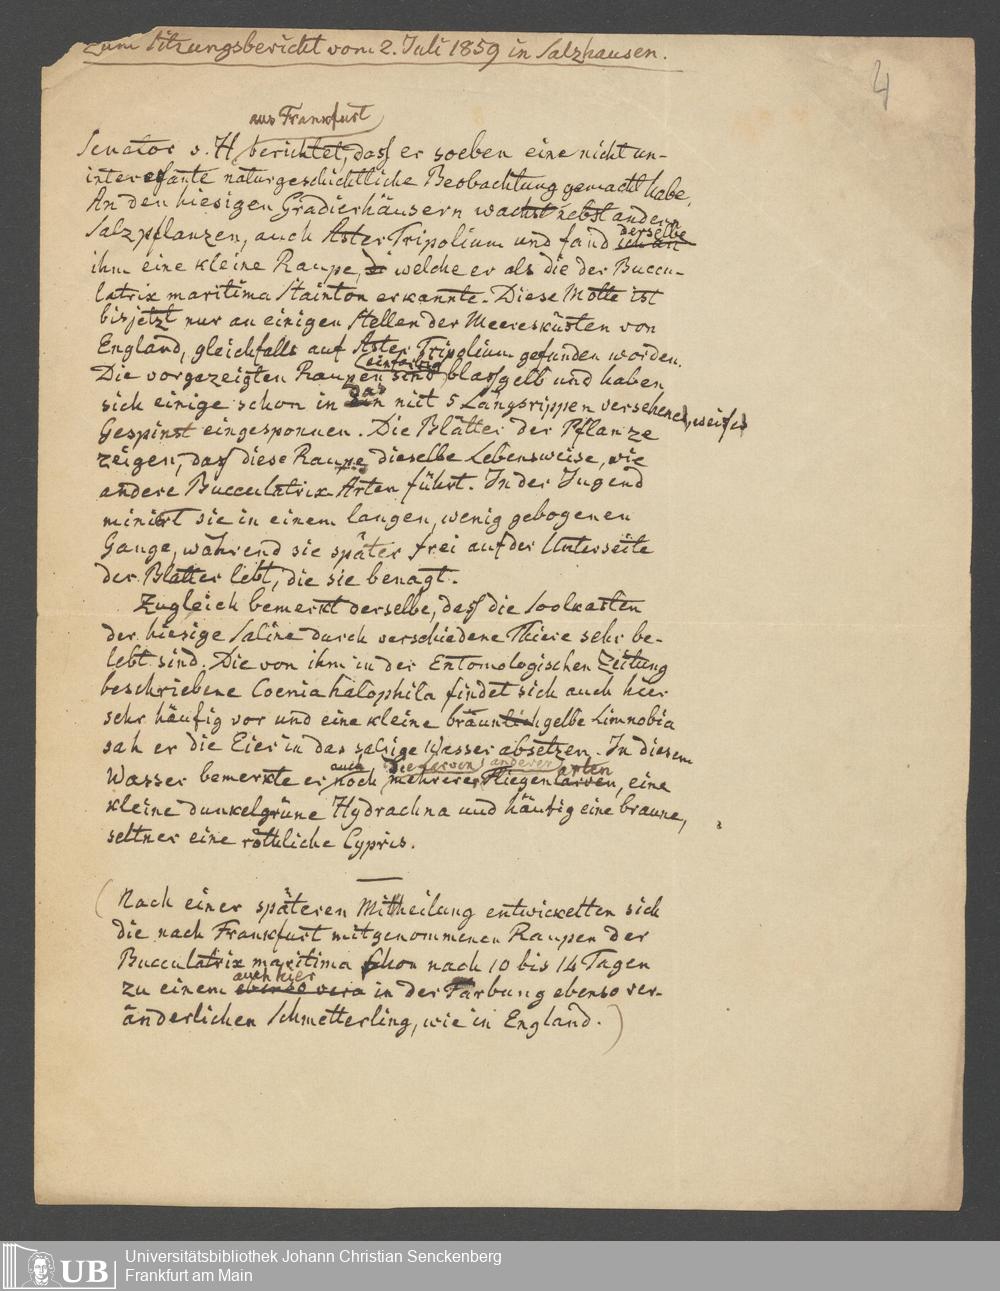 Zum Sitzungsbericht vom 2. Juli 1859 in Salzhausen.
4
aus Frankfurt
Senator v. H. berichtet, dass er soeben eine nicht un-
interessante naturgeschichtliche Beobachtung gemacht habe.
An den hiesigen Gradierhäusern wachst nebst andern
Salzpflanzen, auch Aster Tripolium und fand derselbe
ihm eine kleine Raupe, welche er als die der Buccu-
latrix maritima Stainton erkannte. Diese Motte ist
bis jetzt nur an einigen Stellen der Meeresküsten von
England, gleichfalls auf Aster Tripolium gefunden worden.
Die vorgezeigten Raupen sind einfarbig blassgelb und haben
sich einige schon in das mit 5 Längsrippen versehene, weisse
Gespinst eingesponnen. Die Blätter der Pflanze
zeigen, dass diese Raupe dieselbe Lebensweise, wie
andere Bucculatrix-Arten führt. In der Jugend
minirt sie in einem langen, wenig gebogenen
Gange, während sie später frei auf der Unterseite
der Blätter lebt, die sie benagt.
Zugleich bemerkt derselbe, dass die Soolkasten
der hiesige Saline durch verschiedene Thiere sehr be-
lebt sind. Die von ihm in der Entomologischen Zeitung
beschriebene Coenia halophila findet sich auch hier
sehr häufig vor und eine kleine bräunlichgelbe Limnobia
sah er die Eier in das salzige Wasser absetzen. In diesem
Wasser bemerkte er auch die Larven anderer Fliegenarten, eine
kleine dunkelgrüne Hydrachna und häufig eine braune,
seltner eine röthliche Cypris.
(Nach einer späteren Mittheilung entwickelten sich
die nach Frankfurt mitgenommenen Raupen der
Bucculatrix maritima schon nach 10 bis 14 Tagen
zu einem auch hier in der Färbung ebenso ver-
änderlichen Schmetterling, wie in England.)
UB
Universitätsbibliothek Johann Christian Senckenberg
Frankfurt am Main